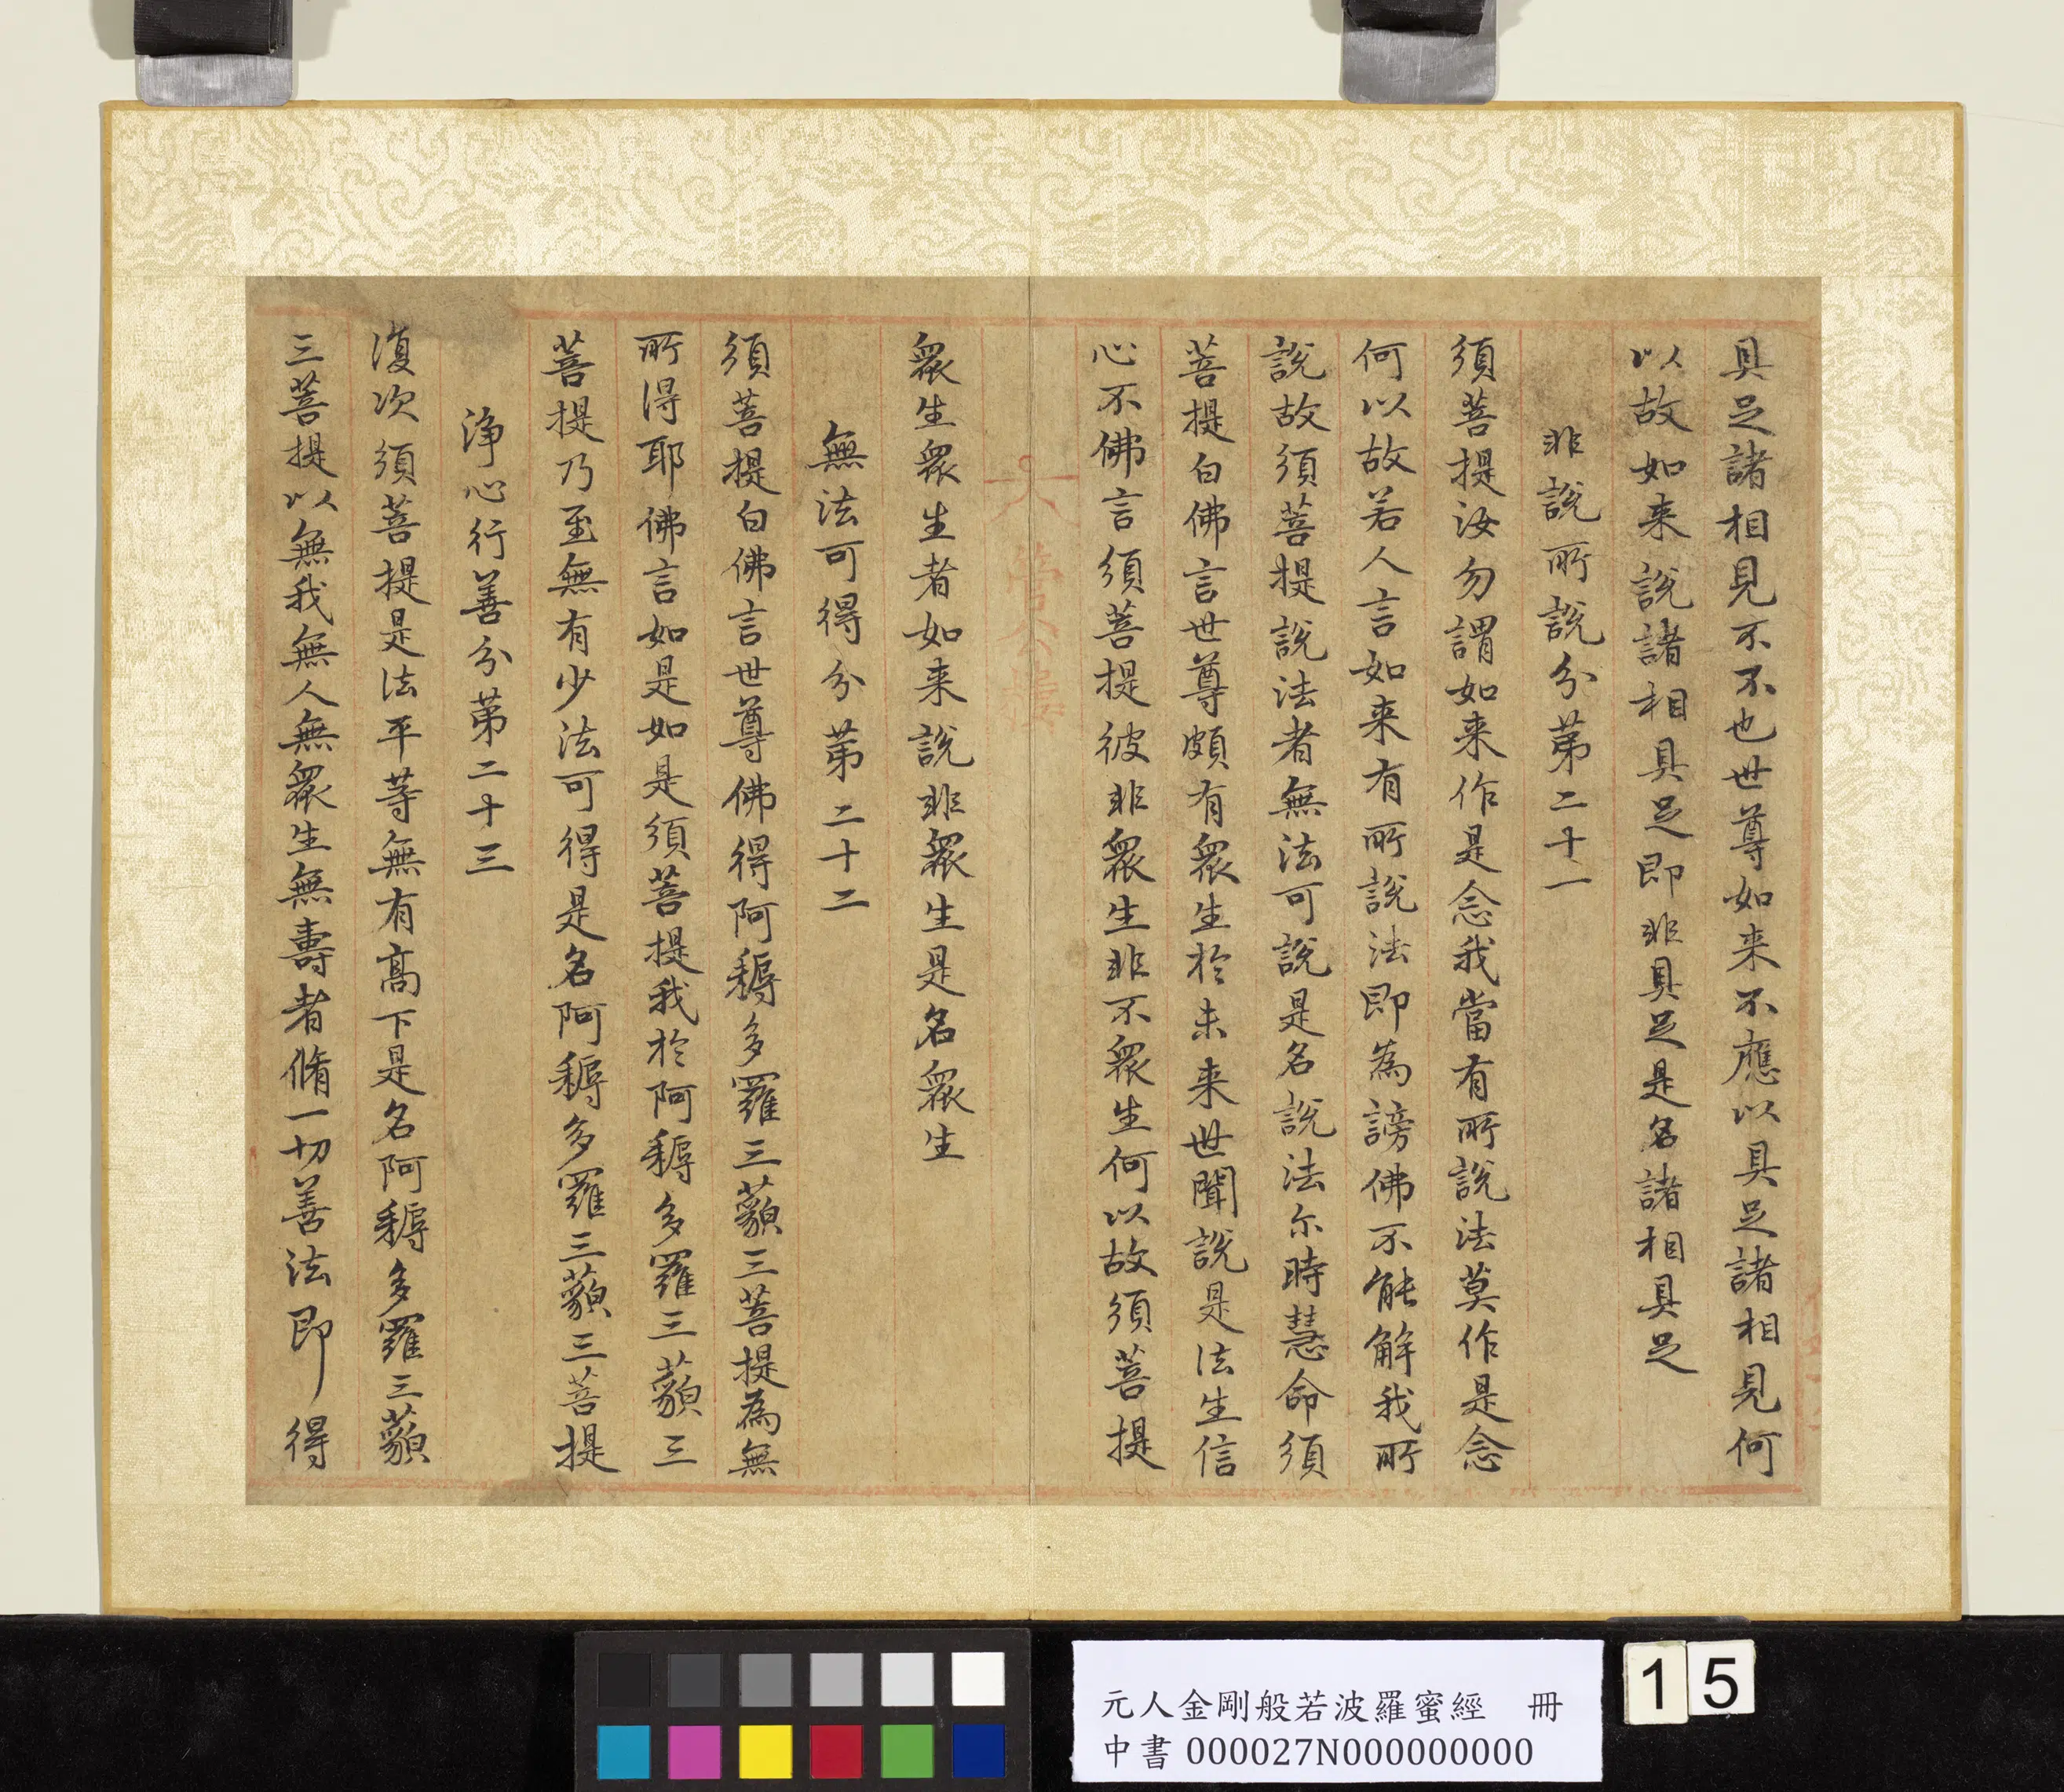 具足諸相見不不也世尊如来不應以具足諸相見何
以故如来說諸相具足即非具足是名諸相具足
非說所說分第二十一
須菩提汝勿謂如来作是念我當有所說法莫作是念
何以故若人言如来有所說法即為謗佛不能解我所
說故須菩提說法者無法可說是名說法尒時慧命須
菩提白佛言世尊頗有眾生於未来世聞說是法生信
心不佛言須菩提彼非眾生非不眾生何以故須菩提
眾生眾生者如来說非眾生是名眾生
無法可得分第二十二
須菩提白佛言世尊佛得阿耨多羅三藐三菩提為無
所得耶佛言如是如是須菩提我於阿耨多羅三藐三
菩提乃至無有少法可得是名阿耨多羅三藐三菩提
淨心行善分第二十三
復次須菩提是法平等無有高下是名阿耨多羅三藐
三菩提以無我無人無眾生無壽者脩一切善法即得
元人金剛般若波羅蜜經 冊
中書 000027N000000000
15